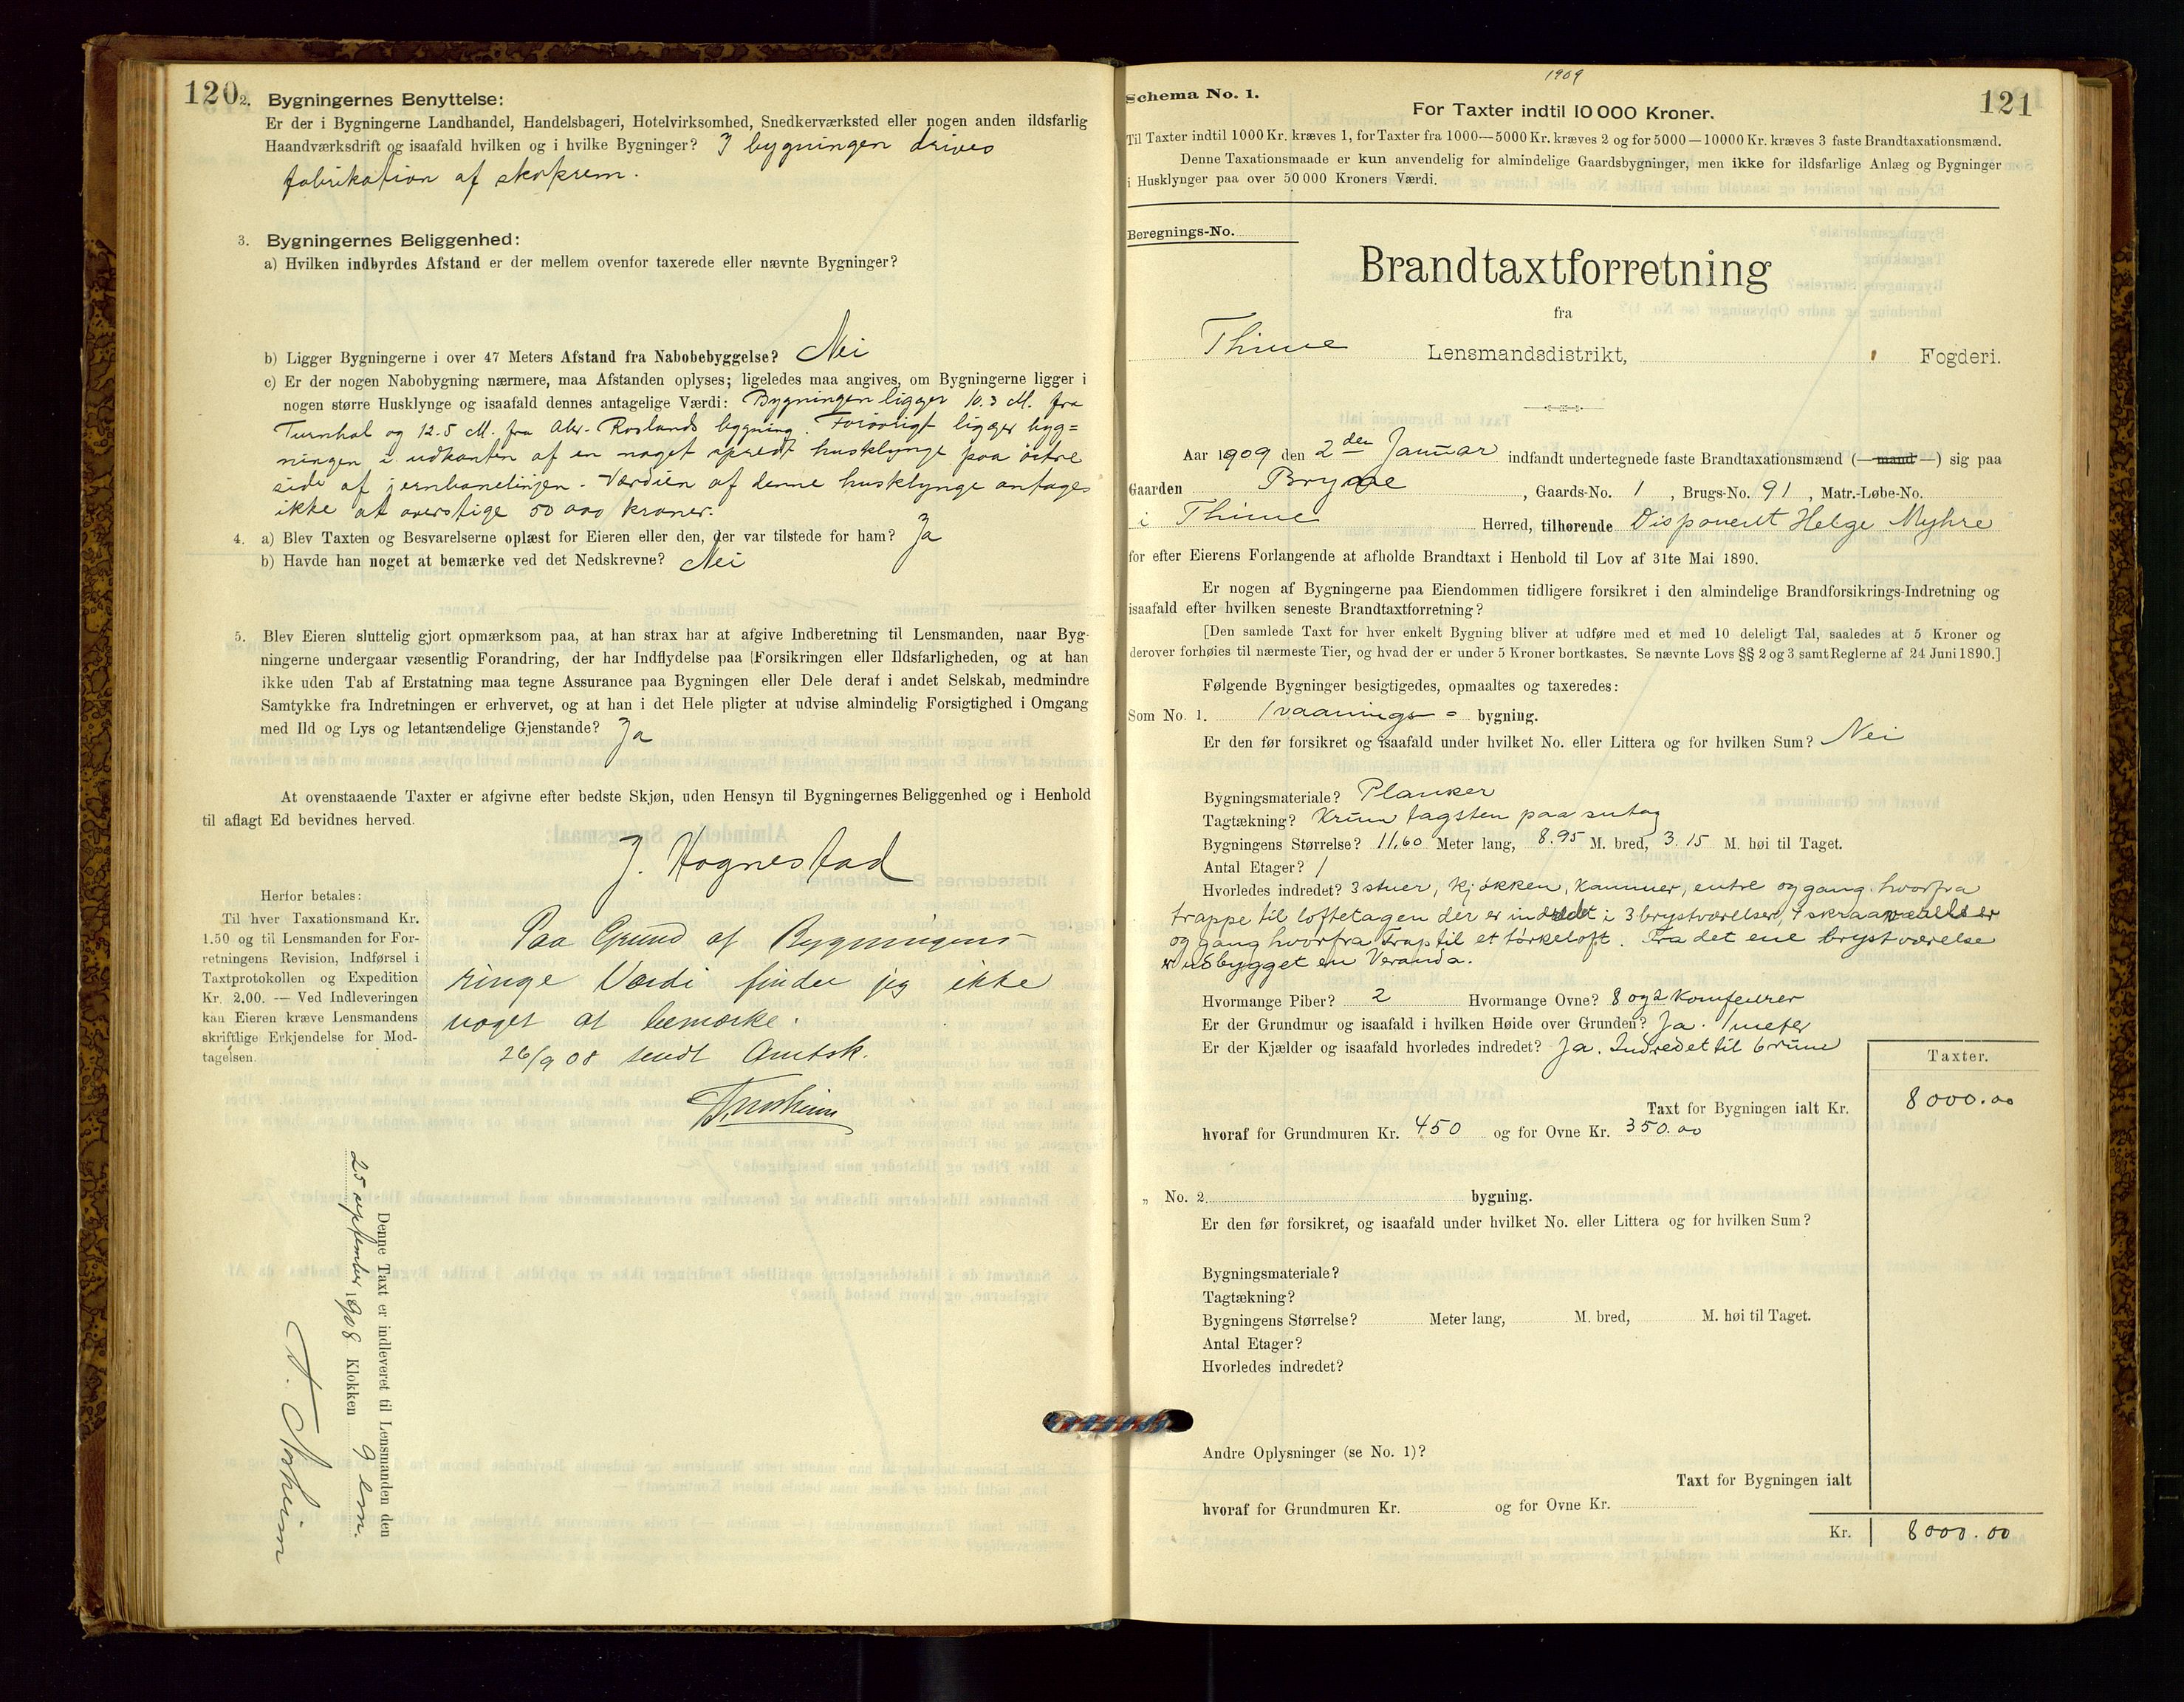 120
2. Bygningernes Benyttelse:
Er der i Bygningerne Landhandel, Handelsbageri, Hotelvirksomhed, Snedkerværksted eller nogen anden ildsfarlig
Haandværksdrift og isaafald hvilken og i hvilke Bygninger? I bygningen drives
fabrikation af skokrem.
3. Bygningernes Beliggenhed:
a) Hvilken indbyrdes Afstand er der mellem ovenfor taxerede eller nævnte Bygninger?
b) Ligger Bygningerne i over 47 Meters Afstand fra Nabobebyggelse? Nei
c) Er der nogen Nabobygning nærmere, maa Afstanden oplyses; ligeledes maa angives, om Bygningerne ligger i
nogen større Husklynge og isaafald dennes antagelige Værdi: Bygningen ligger 10.3 M. fra
Turnhal og 12.5 M. fra Abr. Roslands bygning. Forøvrigt ligger byg=
ningen i udkanten af en noget spredt husklynge paa østre
side af jernbanelinjen. Værdien af denne husklynge antages
ikke at overstige 50 000 kroner.
4. a) Blev Taxten og Besvarelserne oplæst for Eieren eller den, der var tilstede for ham? Ja
b) Havde han noget at bemærke ved det Nedskrevne? Nei
5. Blev Eieren sluttelig gjort opmærksom paa, at han strax har at afgive Indberetning til Lensmanden, naar Byg-
ningerne undergaar væsentlig Forandring, der har Indflydelse paa Forsikringen eller Ildsfarligheden, og at han
ikke uden Tab af Erstatning maa tegne Assurance paa Bygningen eller Dele deraf i andet Selskab, medmindre
Samtykke fra Indretningen er erhvervet, og at han i det Hele pligter at udvise almindelig Forsigtighed i Omgang
med Ild og Lys og letantændelige Gjenstande? Ja
At ovenstaaende Taxter er afgivne efter bedste Skjøn, uden Hensyn til Bygningernes Beliggenhed og i Henhold
til aflagt Ed bevidnes herved.
J. Hognestad
Herfor betales:
Til hver Taxationsmand Kr.
1.50 og til Lensmanden for For-
retningens Revision, Indførsel i
Taxtprotokollen og Expedition
Kr. 2.00. — Ved Indleveringen
kan Eieren kræve Lensmandens
skriftlige Erkjendelse for Mod-
tagelsen.
Paa Grund af Bygningens
ringe Værdi finder jeg ikke
noget at bemærke.
26/9 08 sendt Amtsk.
Denne Taxt er indleveret til Lensmanden den
25 september 1908 Klokken 9 em.
1909
Schema No. 1.
121
For Taxter indtil 10 000 Kroner.
Til Taxter indtil 1000 Kr. kræves 1, for Taxter fra 1000—5000 Kr. kræves 2 og for 5000—10000 Kr. kræves 3 faste Brandtaxationsmænd.
Denne Taxationsmaade er kun anvendelig for almindelige Gaardsbygninger, men ikke for ildsfarlige Anlæg og Bygninger
i Husklynger paa over 50 000 Kroners Værdi.
Beregnings-No.
Brandtaxtforretning
fra
Thime Lensmandsdistrikt, Fogderi.
Aar 1909 den 2den Januar indfandt undertegnede faste Brandtaxationsmænd (— mand —) sig paa
Gaarden Bryne, Gaards-No. 1, Brugs-No. 91, Matr.-Løbe-No.
i Thime Herred, tilhørende Disponent Helge Myhre
for efter Eierens Forlangende at afholde Brandtaxt i Henhold til Lov af 31te Mai 1890.
Er nogen af Bygningerne paa Eiendommen tidligere forsikret i den almindelige Brandforsikrings-Indretning og
isaafald efter hvilken seneste Brandtaxtforretning?
[Den samlede Taxt for hver enkelt Bygning bliver at udføre med et med 10 deleligt Tal, saaledes at 5 Kroner og
derover forhøies til nærmeste Tier, og hvad der er under 5 Kroner bortkastes. Se nævnte Lovs §§ 2 og 3 samt Reglerne af 24 Juni 1890.]
Følgende Bygninger besigtigedes, opmaaltes og taxeredes:
Som No. 1. 1 vaanings= bygning.
Er den før forsikret og isaafald under hvilket No. eller Littera og for hvilken Sum? Nei
Bygningsmateriale? Planker
Tagtækning? Krum tagsten paa sutag
Bygningens Størrelse? 11.60 Meter lang, 8.95 M. bred, 3.15 M. høi til Taget.
Antal Etager? 1
Hvorledes indredet? 3 stuer, kjøkken, kammer, entre og gang hvorfra
trappe til loftetagen der er indredet i 3 brystværelser, 4 skraaværelser
og gang hvorfra Trap til et tørkeloft. Fra det ene brystværelse
er udbygget en Veranda.
Hvormange Piber? 2 Hvormange Ovne? 8 og 2 Komfeurer
Er der Grundmur og isaafald i hvilken Høide over Grunden? Ja. 1 meter
Er der Kjælder og isaafald hvorledes indredet? Ja. Indredet til 6 rum
Taxter.
Taxt for Bygningen ialt Kr. 8000.00
hvoraf for Grundmuren Kr. 450 og for Ovne Kr. 350.00
„ No. 2. bygning.
Er den før forsikret, og isaafald under hvilket No. eller Littera og for hvilken Sum?
Bygningsmateriale?
Tagtækning?
Bygningens Størrelse? Meter lang, M. bred, M. høi til Taget.
Antal Etager?
Hvorledes indredet?
Andre Oplysninger (se No. 1)?
Taxt for Bygningen ialt
hvoraf for Grundmuren Kr. og for Ovne Kr.
Kr. 8000.00